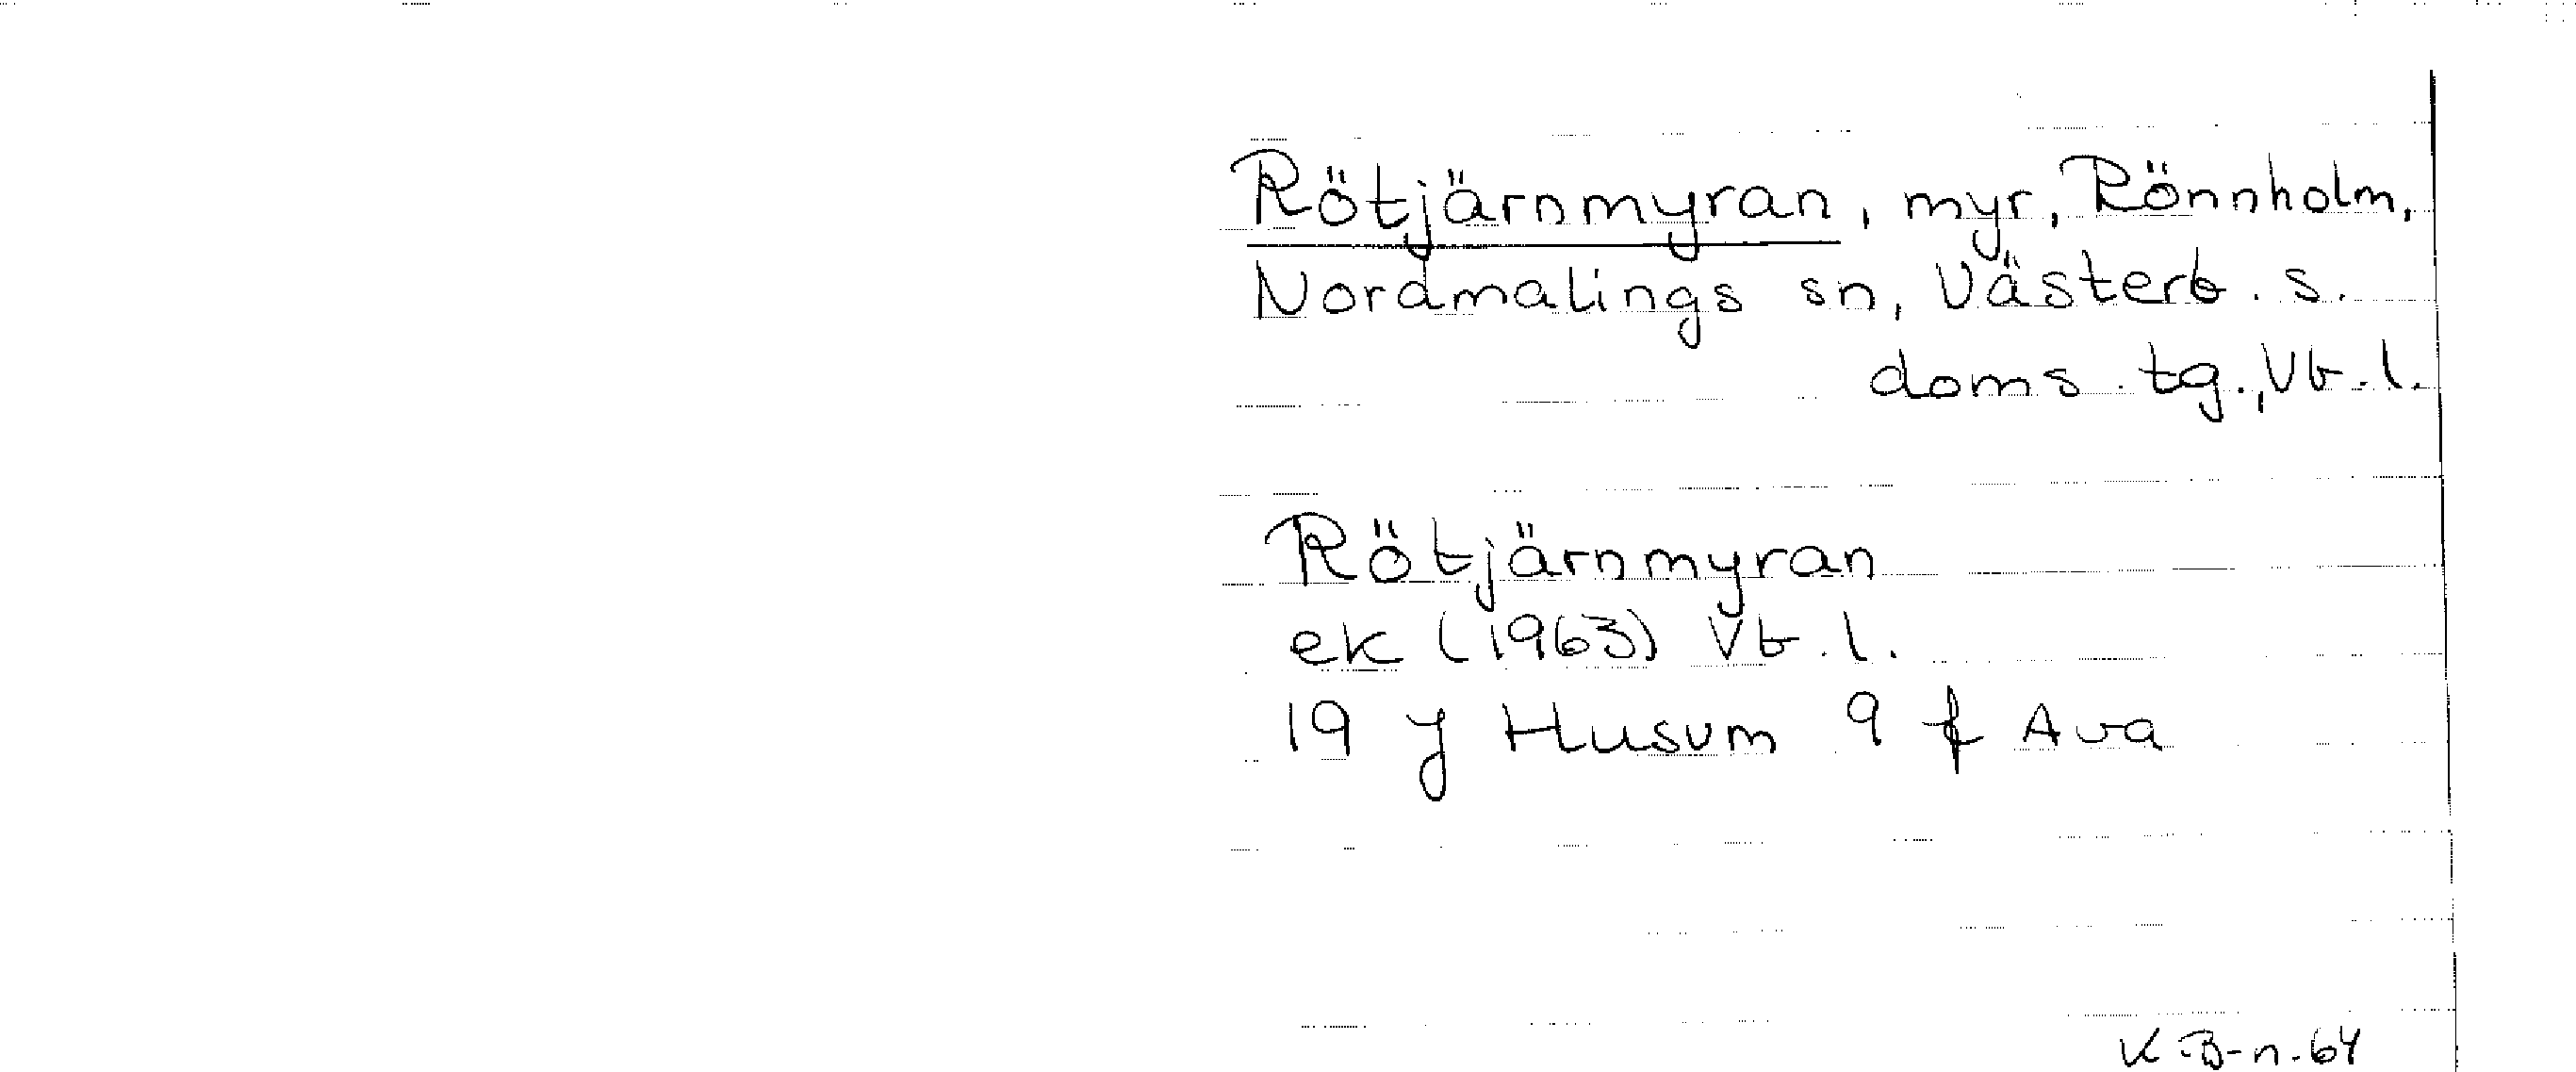 Rötjärnmyran, myr, Rönnholm,
Nordmalings sn, Västerb. s.
doms. tg., Vb. l.
Rötjärnmyran
ek (1963) Vb. l.
19 J Husum 9 f Ava
K B-n. 64